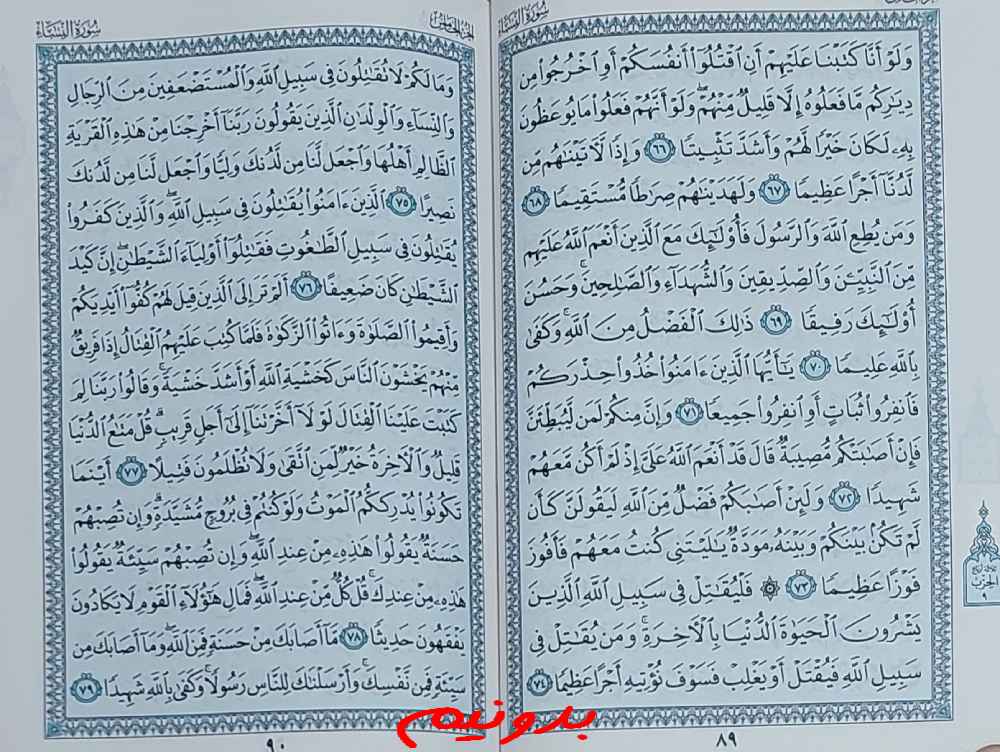 سُورَةُ النِّسَاءِ
وَلَوْ أَنَّا كَتَبْنَا عَلَيْهِمْ أَنِ ٱقْتُلُوٓا۟ أَنفُسَكُمْ أَوِ ٱخْرُجُوا۟ مِن
دِيَٰرِكُم مَّا فَعَلُوهُ إِلَّا قَلِيلٌ مِّنْهُمْ ۖ وَلَوْ أَنَّهُمْ فَعَلُوا۟ مَا يُوعَظُونَ
بِهِۦ لَكَانَ خَيْرًا لَّهُمْ وَأَشَدَّ تَثْبِيتًا ٦٦ وَإِذًا لَّءَاتَيْنَٰهُم مِّن
لَّدُنَّآ أَجْرًا عَظِيمًا ٦٧ وَلَهَدَيْنَٰهُمْ صِرَٰطًا مُّسْتَقِيمًا ٦٨
وَمَن يُطِعِ ٱللَّهَ وَٱلرَّسُولَ فَأُو۟لَٰٓئِكَ مَعَ ٱلَّذِينَ أَنْعَمَ ٱللَّهُ عَلَيْهِم
مِّنَ ٱلنَّبِيِّـۧنَ وَٱلصِّدِّيقِينَ وَٱلشُّهَدَآءِ وَٱلصَّٰلِحِينَ ۚ وَحَسُنَ
أُو۟لَٰٓئِكَ رَفِيقًا ٦٩ ذَٰلِكَ ٱلْفَضْلُ مِنَ ٱللَّهِ ۚ وَكَفَىٰ
بِٱللَّهِ عَلِيمًا ٧٠ يَٰٓأَيُّهَا ٱلَّذِينَ ءَامَنُوا۟ خُذُوا۟ حِذْرَكُمْ
فَٱنفِرُوا۟ ثُبَاتٍ أَوِ ٱنفِرُوا۟ جَمِيعًا ٧١ وَإِنَّ مِنكُمْ لَمَن لَّيُبَطِّئَنَّ
فَإِنْ أَصَٰبَتْكُم مُّصِيبَةٌ قَالَ قَدْ أَنْعَمَ ٱللَّهُ عَلَىَّ إِذْ لَمْ أَكُن مَّعَهُمْ
شَهِيدًا ٧٢ وَلَئِنْ أَصَٰبَكُمْ فَضْلٌ مِّنَ ٱللَّهِ لَيَقُولَنَّ كَأَن
لَّمْ تَكُنۢ بَيْنَكُمْ وَبَيْنَهُۥ مَوَدَّةٌ يَٰلَيْتَنِى كُنتُ مَعَهُمْ فَأَفُوزَ
فَوْزًا عَظِيمًا ٧٣ ۞ فَلْيُقَٰتِلْ فِى سَبِيلِ ٱللَّهِ ٱلَّذِينَ
يَشْرُونَ ٱلْحَيَوٰةَ ٱلدُّنْيَا بِٱلْءَاخِرَةِ ۚ وَمَن يُقَٰتِلْ فِى
سَبِيلِ ٱللَّهِ فَيُقْتَلْ أَوْ يَغْلِبْ فَسَوْفَ نُؤْتِيهِ أَجْرًا عَظِيمًا ٧٤
٨٩
سُورَةُ النِّسَاءِ
وَمَا لَكُمْ لَا تُقَٰتِلُونَ فِى سَبِيلِ ٱللَّهِ وَٱلْمُسْتَضْعَفِينَ مِنَ ٱلرِّجَالِ
وَٱلنِّسَآءِ وَٱلْوِلْدَٰنِ ٱلَّذِينَ يَقُولُونَ رَبَّنَآ أَخْرِجْنَا مِنْ هَٰذِهِ ٱلْقَرْيَةِ
ٱلظَّالِمِ أَهْلُهَا وَٱجْعَل لَّنَا مِن لَّدُنكَ وَلِيًّا وَٱجْعَل لَّنَا مِن لَّدُنكَ
نَصِيرًا ٧٥ ٱلَّذِينَ ءَامَنُوا۟ يُقَٰتِلُونَ فِى سَبِيلِ ٱللَّهِ ۖ وَٱلَّذِينَ كَفَرُوا۟
يُقَٰتِلُونَ فِى سَبِيلِ ٱلطَّٰغُوتِ فَقَٰتِلُوٓا۟ أَوْلِيَآءَ ٱلشَّيْطَٰنِ ۖ إِنَّ كَيْدَ
ٱلشَّيْطَٰنِ كَانَ ضَعِيفًا ٧٦ أَلَمْ تَرَ إِلَى ٱلَّذِينَ قِيلَ لَهُمْ كُفُّوٓا۟ أَيْدِيَكُمْ
وَأَقِيمُوا۟ ٱلصَّلَوٰةَ وَءَاتُوا۟ ٱلزَّكَوٰةَ فَلَمَّا كُتِبَ عَلَيْهِمُ ٱلْقِتَالُ إِذَا فَرِيقٌ
مِّنْهُمْ يَخْشَوْنَ ٱلنَّاسَ كَخَشْيَةِ ٱللَّهِ أَوْ أَشَدَّ خَشْيَةً ۚ وَقَالُوا۟ رَبَّنَا لِمَ
كَتَبْتَ عَلَيْنَا ٱلْقِتَالَ لَوْلَآ أَخَّرْتَنَآ إِلَىٰٓ أَجَلٍ قَرِيبٍ ۗ قُلْ مَتَٰعُ ٱلدُّنْيَا
قَلِيلٌ وَٱلْءَاخِرَةُ خَيْرٌ لِّمَنِ ٱتَّقَىٰ وَلَا تُظْلَمُونَ فَتِيلًا ٧٧ أَيْنَمَا
تَكُونُوا۟ يُدْرِككُّمُ ٱلْمَوْتُ وَلَوْ كُنتُمْ فِى بُرُوجٍ مُّشَيَّدَةٍ ۗ وَإِن تُصِبْهُمْ
حَسَنَةٌ يَقُولُوا۟ هَٰذِهِۦ مِنْ عِندِ ٱللَّهِ ۖ وَإِن تُصِبْهُمْ سَيِّئَةٌ يَقُولُوا۟
هَٰذِهِۦ مِنْ عِندِكَ ۚ قُلْ كُلٌّ مِّنْ عِندِ ٱللَّهِ ۖ فَمَالِ هَٰٓؤُلَآءِ ٱلْقَوْمِ لَا يَكَادُونَ
يَفْقَهُونَ حَدِيثًا ٧٨ مَّآ أَصَابَكَ مِنْ حَسَنَةٍ فَمِنَ ٱللَّهِ ۖ وَمَآ أَصَابَكَ مِن
سَيِّئَةٍ فَمِن نَّفْسِكَ ۚ وَأَرْسَلْنَٰكَ لِلنَّاسِ رَسُولًا ۚ وَكَفَىٰ بِٱللَّهِ شَهِيدًا ٧٩
٩٠
بدونیم